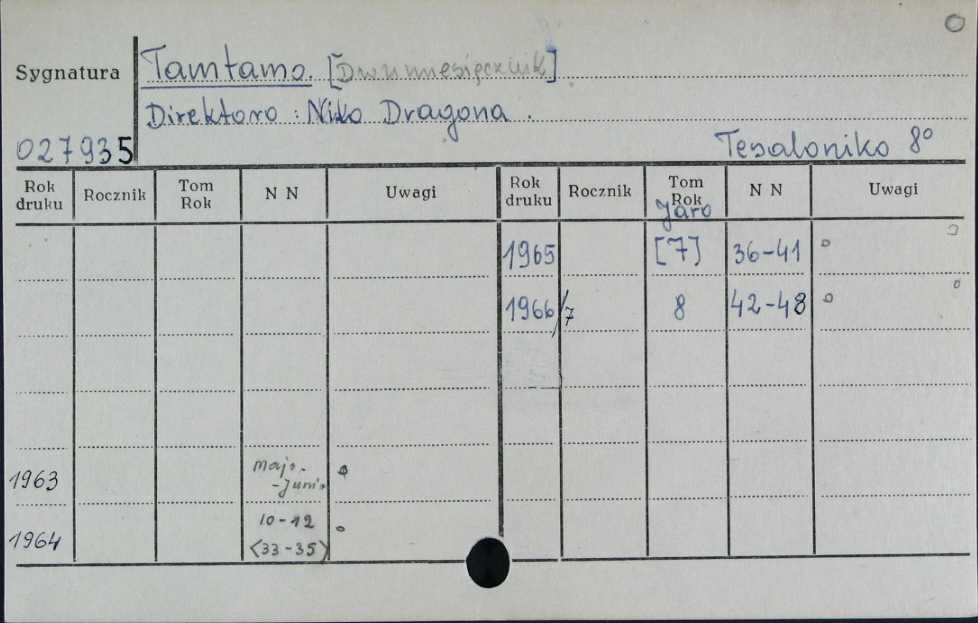 Sygnatura
Tamtamo. [Dwumiesięcznik]
Direktoro: Niko Dragona.
027935
Tesaloniko 8°
Rok druku Rocznik Tom Rok N N Uwagi Rok druku Rocznik Tom Rok N N Uwagi
Jaro
1965 [7] 36-41
1966/7 8 42-48
1963 majo.-Junio
1964 10-12
<33-35>